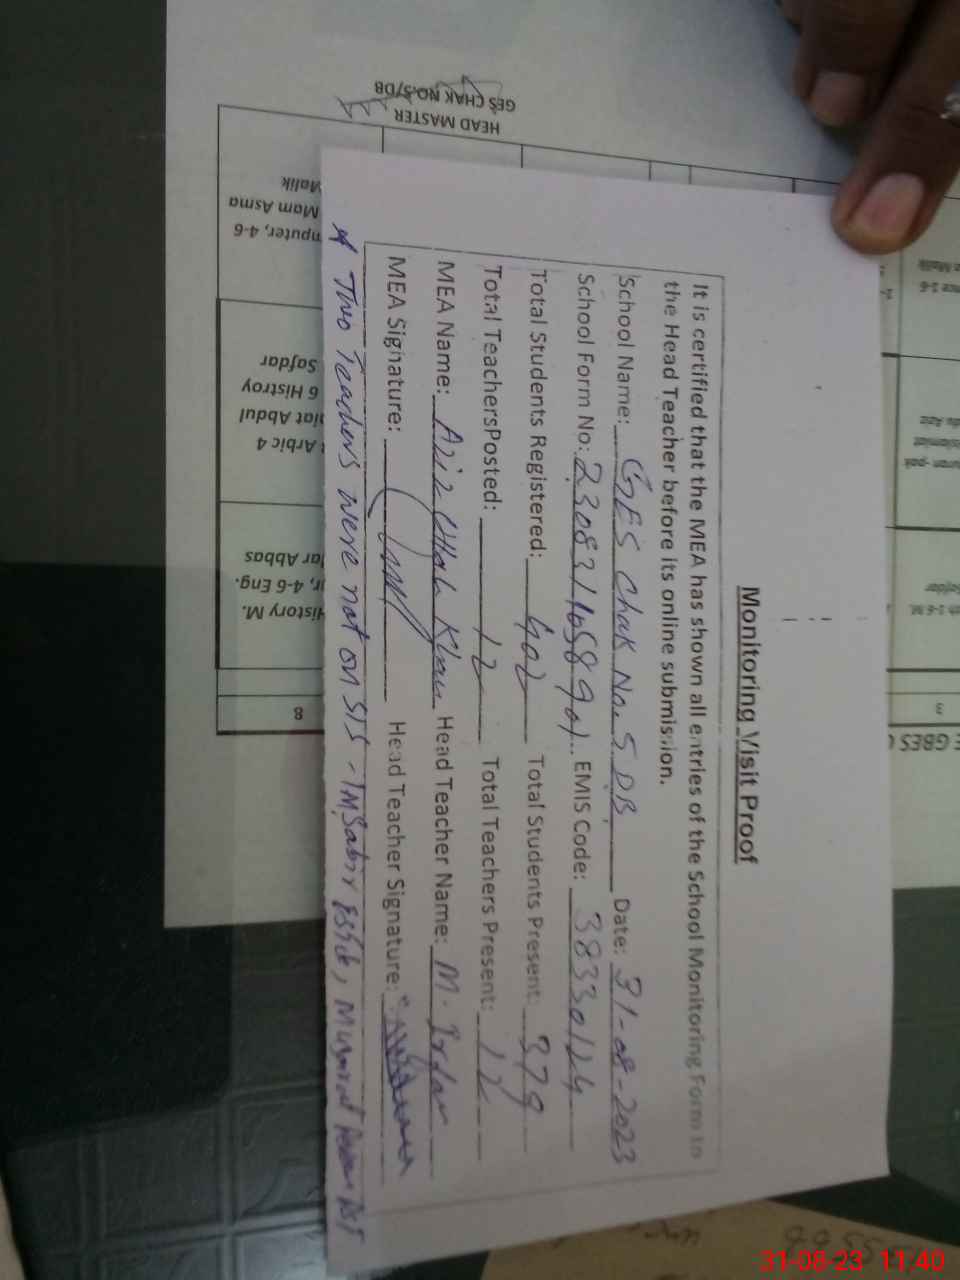 Monitoring Visit Proof
It is certified that the MEA has shown all entries of the School Monitoring Form to
the Head Teacher before its online submission.
School Name: GES Chak No. 5 DB Date: 31-08-2023
School Form No: EMIS Code: 38330124
Total Students Registered: 402 Total Students Present: 379
Total TeachersPosted: 12 Total Teachers Present: 12
MEA Name: Aziz Ullah Khan Head Teacher Name: M.
MEA Signature: Head Teacher Signature:
* Two Teachers were not on SIS - M Sabir
HEAD MASTER
GES CHAK NO.5/DB
mputer, 4-6
Mam Asma
Malik
Arbic 4
iat Abdul
6 Histroy
Safdar
History M.
r, 4-6 Eng.
ar Abbas
8
3
GBES
31-08-23 11:40